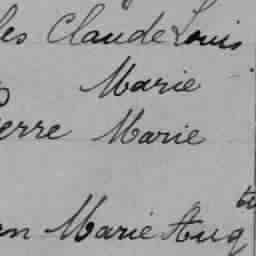 les Claude Louis
Marie
erre Marie
en Marie Aug